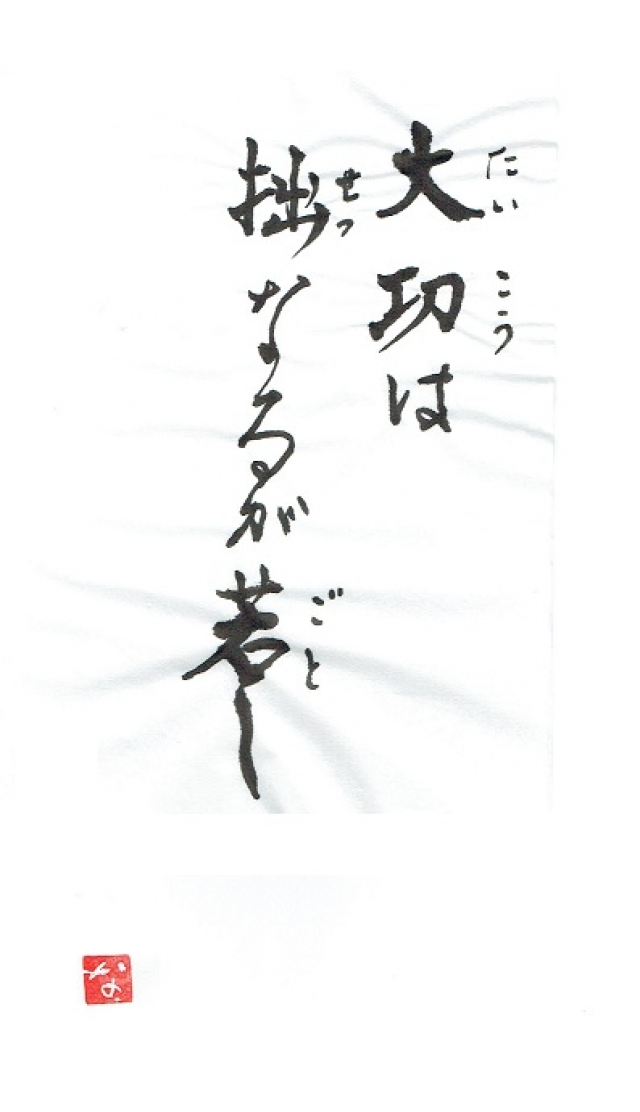 たいこう
大功は
せつ ごと
拙なるが若し
な